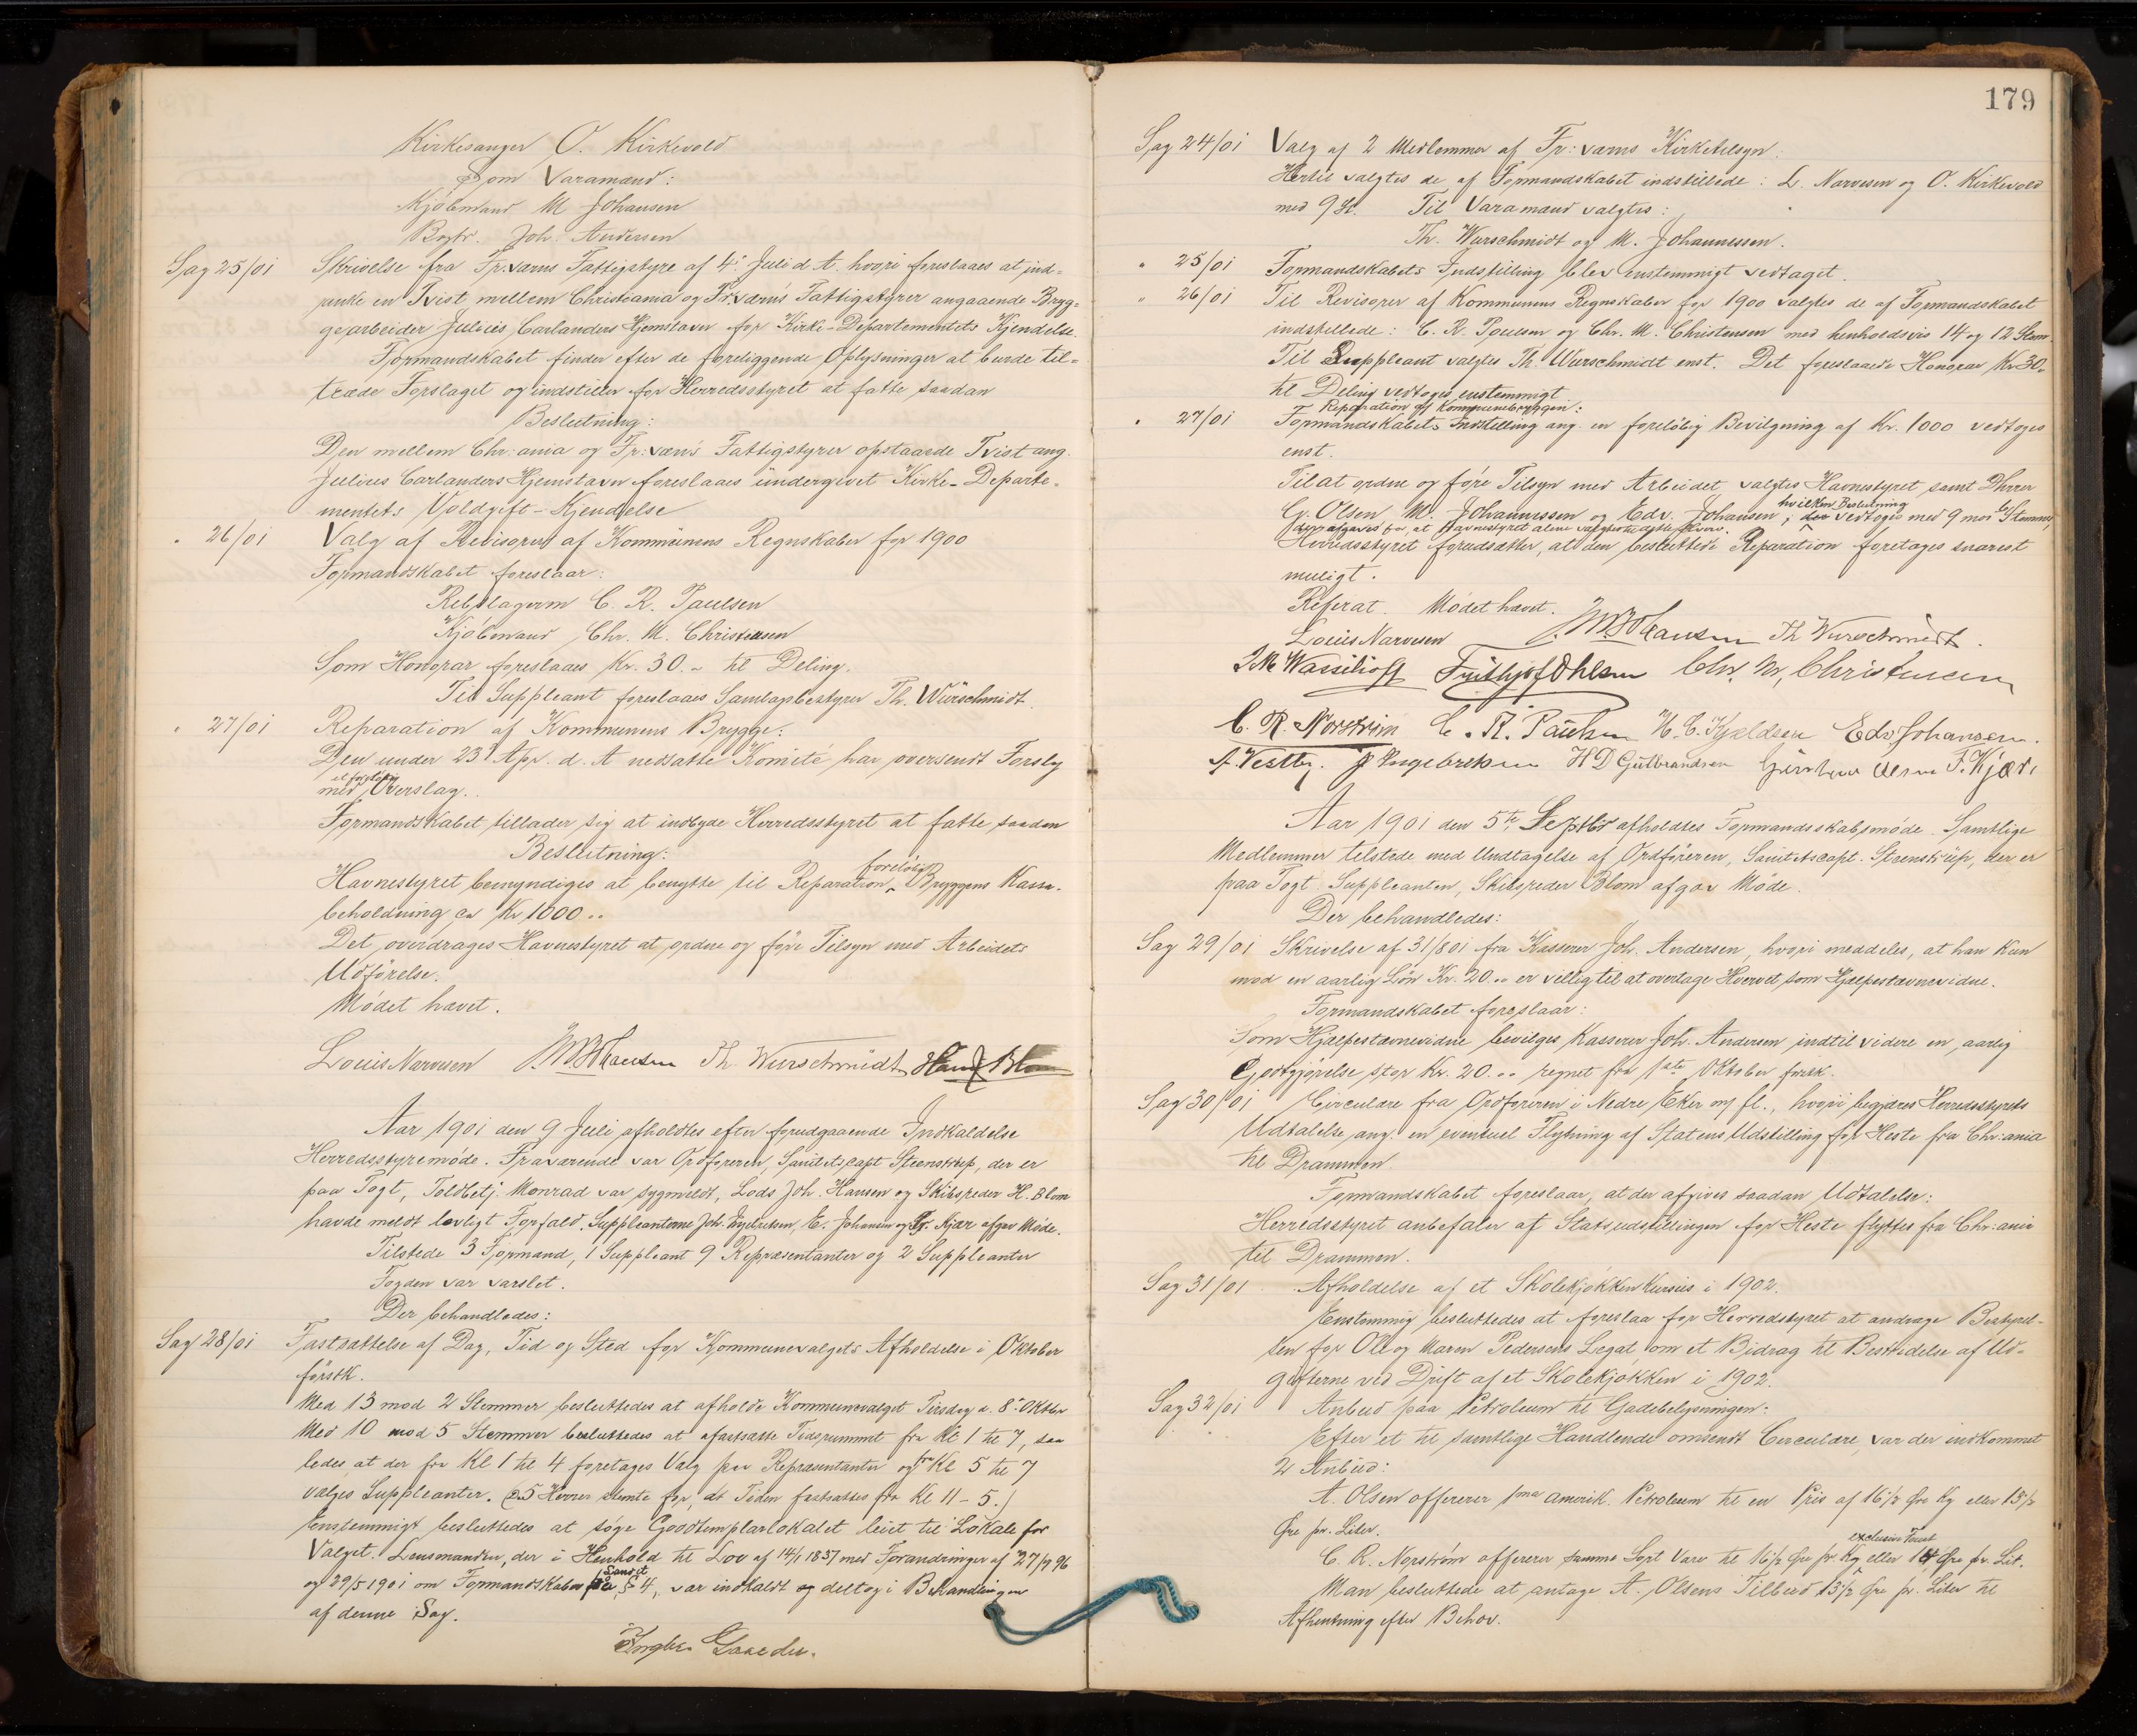 Kirkesanger O. Kirkevold
Som Varamænd:
Kjøbmand M Johansen
Bogtr. Joh. Andersen
Sag 25/01 Skrivelse fra Fr:værns Fattigstyre af 4. Juli d. A. hvori foreslaaes at ind-
anke en Tvist mellem Christiania og Fr:værns Fattigstyrer angaaende Bryg-
gearbeider Julius Carlanders Hjemstavn for Kirke-Departementets Kjendelse.
Formandskabet finder efter de foreliggende Oplysninger at burde til-
træde Forslaget og indstiller for Herredsstyret at fatte saadan
Beslutning:
Den mellem Chr:ania og Fr:værns Fattigstyrer opstaaede Tvist ang.
Julius Carlanders Hjemstavn foreslaaes undergivet Kirke-Departe-
mentets Voldgift-Kjendelse
" 26/01 Valg af Revisorer af Kommunens Regnskaber for 1900
Formandskabet foreslaar:
Rebslagerm C. R. Paulsen
Kjøbmand Chr. M. Christensen
Som Honorar foreslaaes Kr. 30.- til Deling.
Til Suppleant foreslaaes Samlagsbestyrer Th. Würschmidt.
" 27/01 Reparation af Kommunens Brygge:
Den under 23 Apr. d. A nedsatte Komité har oversendt Forslag
med Overslag.
Formandskabet tillader sig at indbyde Herredsstyret at fatte saadan
Beslutning:
Havnestyret bemyndiges at benytte til Reparation foreløbig Bryggens Kasse-
beholdning ca Kr 1000..
Det overdrages Havnestyret at ordne og føre Tilsyn med Arbeidets
Udførelse.
Mødet hævet.
Louis Narvesen J. M. Johansen Th. Wurschmidt Hans J Blom
Aar 1901 den 9 Juli afholdtes efter forudgaaende Indkaldelse
Herredsstyremøde. Fraværende var Ordføreren, Sanitetscapt Steenstrup, der er
paa Togt, Toldbetj. Monrad var sygmeldt, Lods Joh. Hansen og Skibsreder H. Blom
havde meldt lovligt Forfald. Suppleanterne Joh. Engebretsen, E. Johansen og Fr. Kjær afgav Møde.
Tilstede 3 Formænd, 1 Suppleant 9 Repræsentanter og 2 Suppleanter
Fogden var varslet.
Der behandledes:
Sag 28/01 Fastsættelse af Dag, Tid og Sted for Kommunevalgets Afholdelse i Oktober
førstk.
Med 13 mod 2 Stemmer besluttedes at afholde Kommunevalget Tirsdag d. 8de Oktber
Med 10 mod 5 Stemmer besluttedes at fastsætte Tidsrummet fra Kl 1 til 7, saa
ledes at der fra Kl 1 til 4 foretages Valg paa Repræsentanter og fra Kl 5 til 7
vælges Suppleanter. (5 Herrer stemte for, at Tiden fastsættes fra Kl 11 - 5.)
Enstemmigt besluttedes at søge Goodtemplarlokalet leiet til Lokale for
Valget. Lensmanden, der i Henhold til Lov af 14/1 1837 med Forandringer af 27/7 96
og 29/5 1901 om Formandskaber paa Landet § 4, var indkaldt og deltog i Behandlingen
af denne Sag.
179
Sag 24/01 Valg af 2 Medlemmer af Fr:værns Kirketilsyn.
Hertil valgtes de af Formandskabet indstillede: L. Narvesen og O. Kirkevold
med 9 St. Til Varamænd valgtes:
Th. Wurschmidt og M. Johannessen.
" 25/01 Formandskabets Indstilling blev enstemmigt vedtaget.
" 26/01 Til Revisorer af Kommunens Regnskaber for 1900 valgtes de af Formandskabet
indstillede: C. R. Poulsen og Chr. M. Christensen med henholdsvis 14 og 12 Stem.
Til Suppleant valgtes Th. Würschmidt enst. Det foreslaaede Honorar Kr 30.
til Deling vedtoges enstemmigt
Reparation af Kommunebryggen:
" 27/01 Formandskabets Indstilling ang. en foreløbig Bevilgning af Kr. 1000 vedtoges
enst.
Til at ordne og føre Tilsyn med Arbeidet valgtes Havnestyret samt Dhrrer
G. Olsen M. Johannessen og Edv. Johansen, hvilken Beslutning vedtoges med 9 mod 6 Stemmer,
Herredsstyret forudsætter, at den besluttede Reparation foretages snarest
muligt.
Referat. Mødet hævet.
Louis Narvesen J. M. Johansen Th Wurschmidt.
J M Wassilioff Frithjof Ohlsen Chr. M. Christensen
C. R. Norstrøm C. R. Paulsen H. C. Kjeldsen Edv Johansen.
A. Vestby. J Engebretsen H D Gulbrandsen Gustav Olsen F. Kjær.
Aar 1901 den 5te Septbr afholdtes Formandsskabsmøde. Samtlige
Medlemmer tilstede med Undtagelse af Ordføreren, Sanitetscapt. Steenstrup, der er
paa Togt. Suppleanten, Skibsreder Blom afgav Møde.
Der behandledes:
Sag 29/01 Skrivelse af 31/8 01 fra Kasserer Joh. Andersen, hvori meddeles, at han kun
mod en aarlig Løn Kr. 20.- er villig til at overtage Hvervet som Hjælpestævnevidne.
Formandskabet foreslaar:
Som Hjælpestævnevidne bevilges Kasserer Joh. Andersen indtil videre en aarlig
Godtgjørelse stor Kr. 20.- regnet fra 1ste Oktober førstk.
Sag 30/01 Circulære fra Ordføreren i Nedre Eker m/ fl., hvori begjæres Herredsstyrets
Udtalelse ang. en eventuel Flytning af Statens Udstilling for Heste fra Chr:ania
til Drammen.
Formandskabet foreslaar, at der afgives saadan Udtalelse:
Herredsstyret anbefaler at Statsudstillingen for Heste flyttes fra Chr:ania
til Drammen.
Sag 31/01 Afholdelse af et Skolekjøkkenkursus i 1902.
Enstemmig besluttedes at foreslaa for Herredsstyret at andrage Bestyrel-
sen for Ole og Maren Pedersens Legat om et Bidrag til Bestridelse af Ud-
gifterne ved Drift af et Skolekjøkken i 1902.
Sag 32/01 Anbud paa Petroleum til Gadebelysningen:
Efter et til samtlige Handlende omsendt Circulære var der indkommet
2 Anbud:
A. Olsen offererer 1ma amerik. Petroleum til en Pris af 16 1/2 Øre Kg eller 13 1/2
Øre pr. Liter.
C. R. Norstrøm offererer samme Sort Vare til 16 1/2 Øre pr Kg exclusive Foust eller 14 Øre pr. Lit.
Man besluttede at antage A. Olsens Tilbud 13 1/2 Øre pr. Liter til
Afhentning efter Behov.